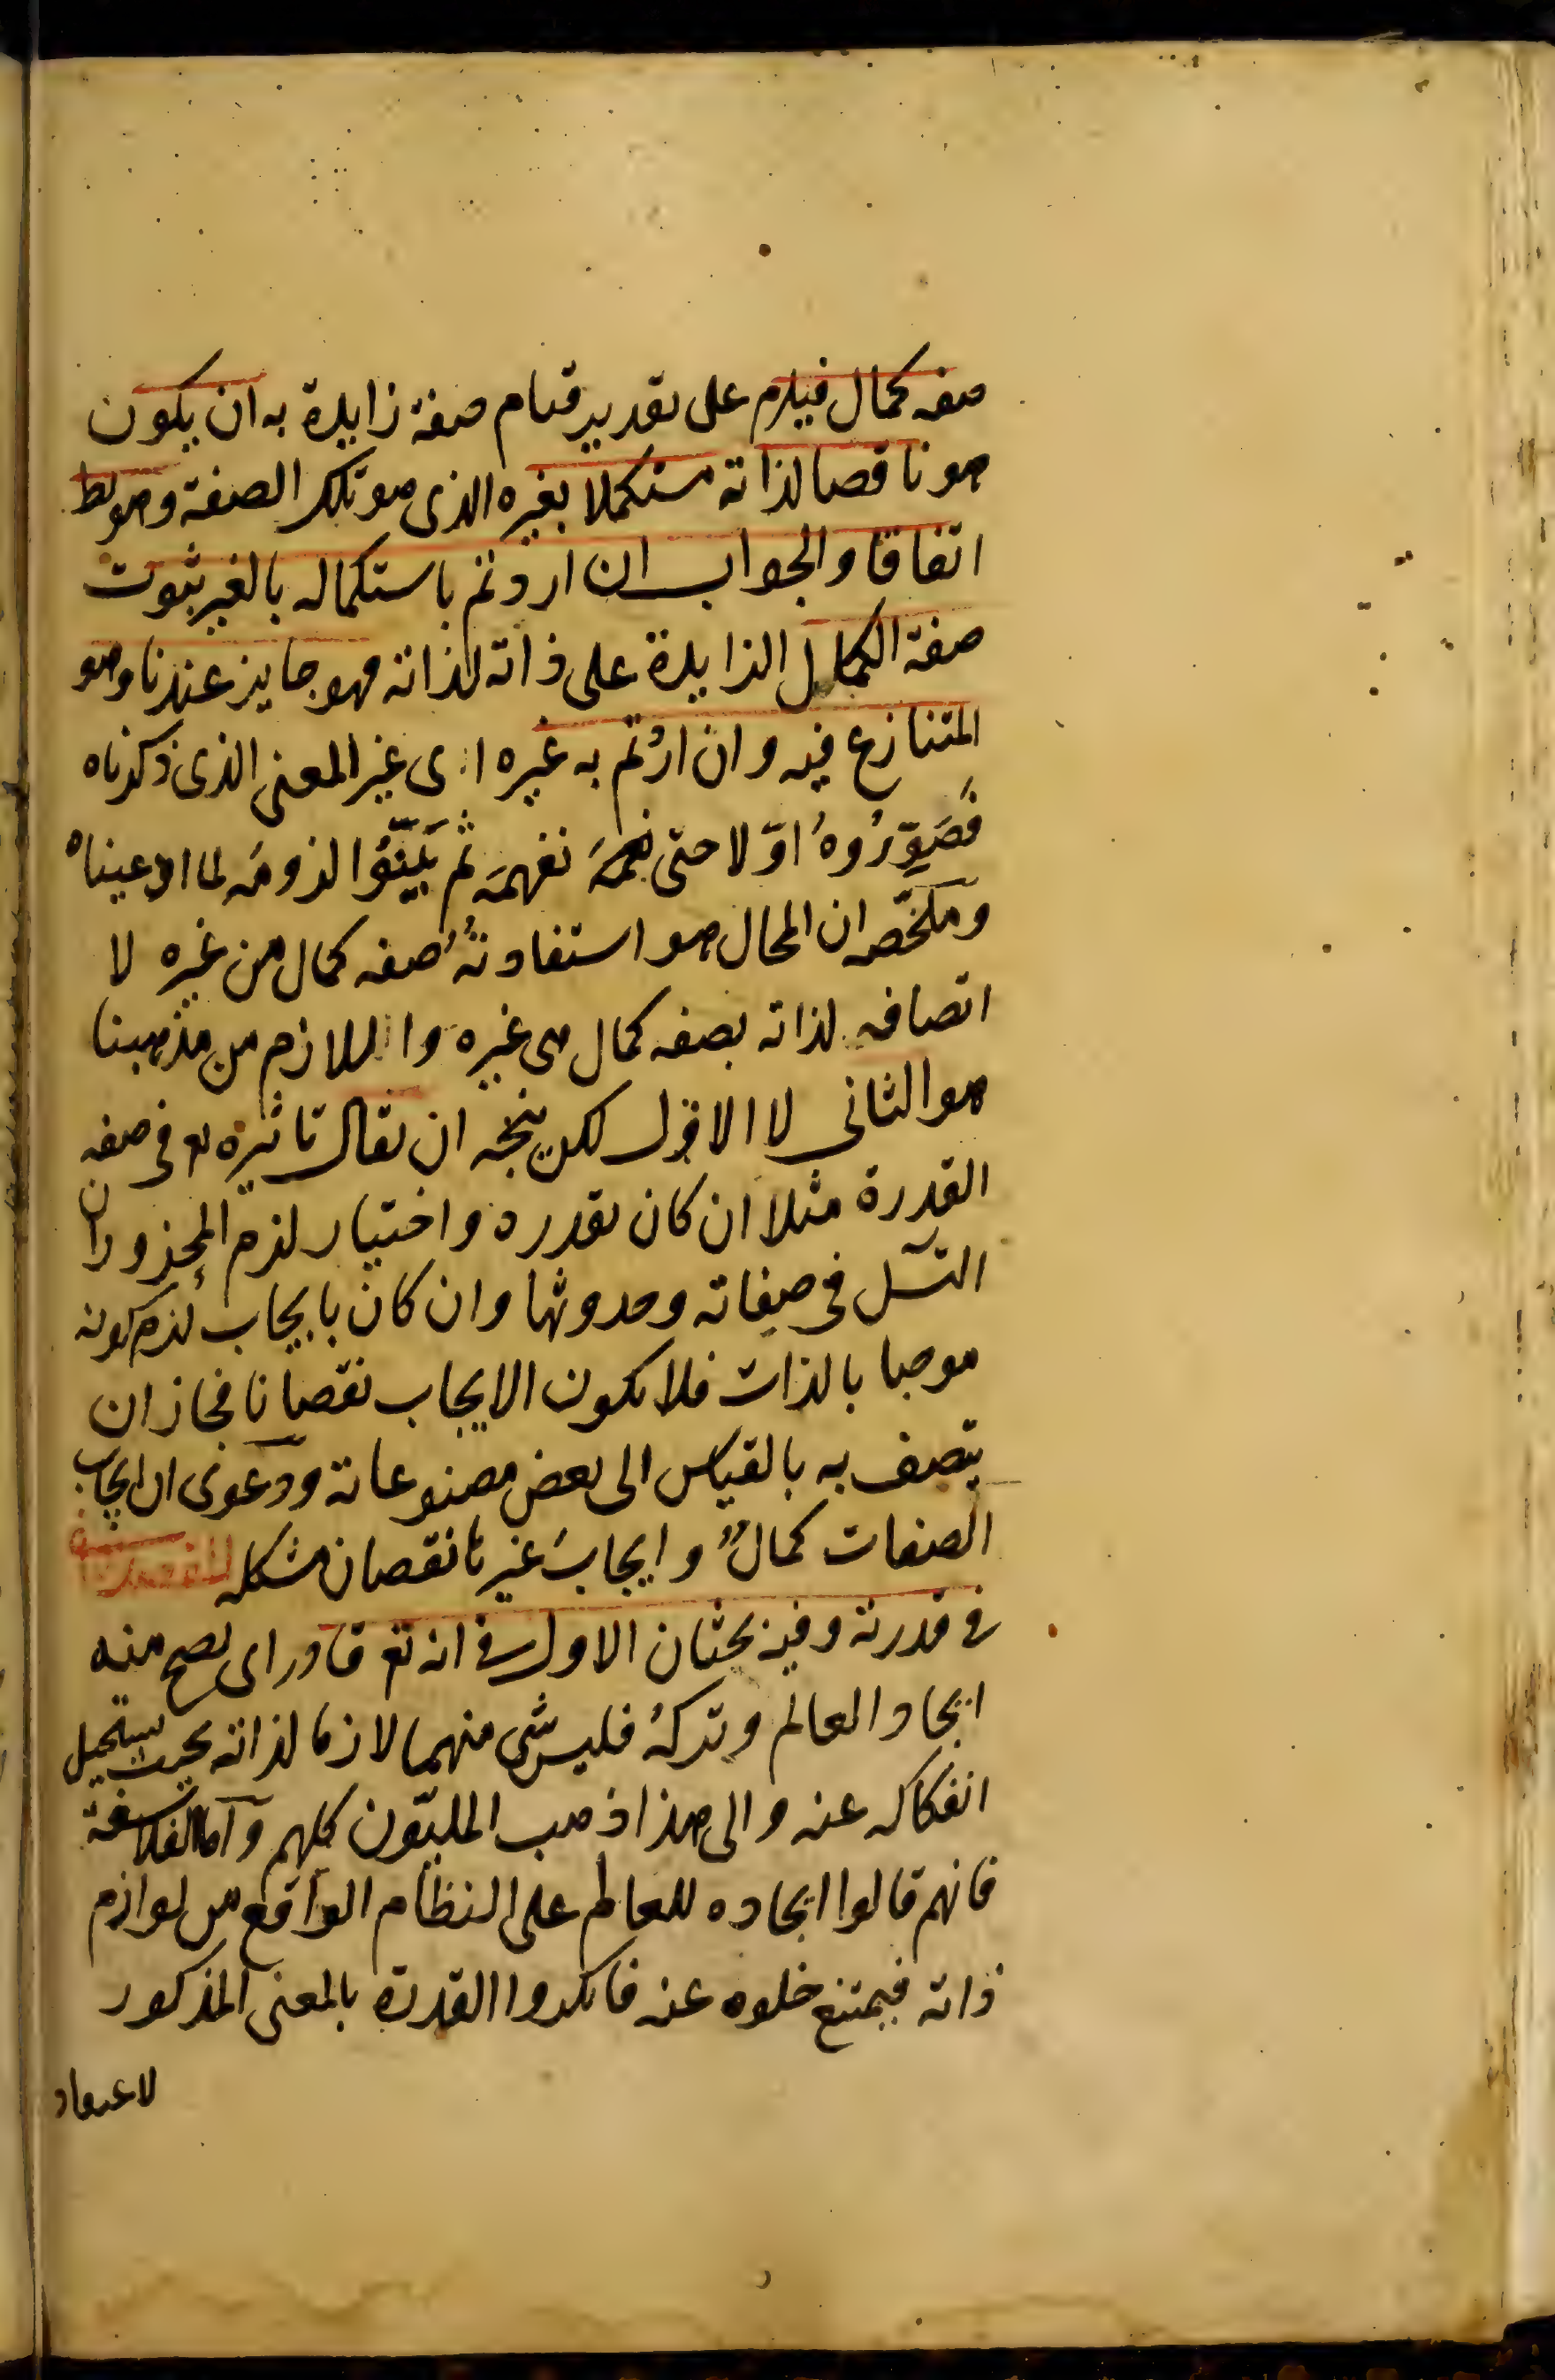 صفه كمال فيلزم على تقدير قيام صفة زايدة به ان يكون
هو ناقصا لذاته مستكملا بغيره الذى هو تلك الصفة وهو بط
اتفاقا والجواب ان اردتم باستكماله بالغير ثبوت
صفة الكمال الزايدة على ذاته لذاته فهو جايز عندنا وهو
المتنازع فيه وان اردتم به غيره اى غير المعنى الذى ذكرناه
فَصَوِّرُوهُ اوّلا حتى نفهمَه ثم بَيِّنُوا لزومَه لما ادعيناه
وملخّصه ان المحال هو استفادتُهُ صفه كمال من غيره لا
اتصافه لذاته بصفه كمال هى غيره واللازم من مذهبنا
هو الثانى لا الاول لكن يتجه ان يقال تاثيره تع فى صفه
القدرة مثلا ان كان بقدرة واختيار لزم المحذوران
التسل فى صفاته وحدوثها وان كان بايجاب لزم كونه
موجبا بالذات فلا يكون الايجاب نقصانا فجاز ان
يتصف به بالقياس الى بعض مصنوعاته ودعوى ان ايجاب
الصفات كمالٌ وايجابَ غيرها نقصان مشكله
فى قدرته وفيه بحثان الاول فى انه تع قادر اى يصح منه
ايجاد العالم وتركهُ فليس شى منهما لازما لذاته بحيث يستحيل
انفكاكه عنه والى هذا ذهب المليّون كلهم وآما الفلاسفة
فانهم قالوا ايجاده للعالم على النظام الواقع من لوازم
ذاته فيمتنع خلوه عنه فانكروا القدرة بالمعنى المذكور
لاعتقاد